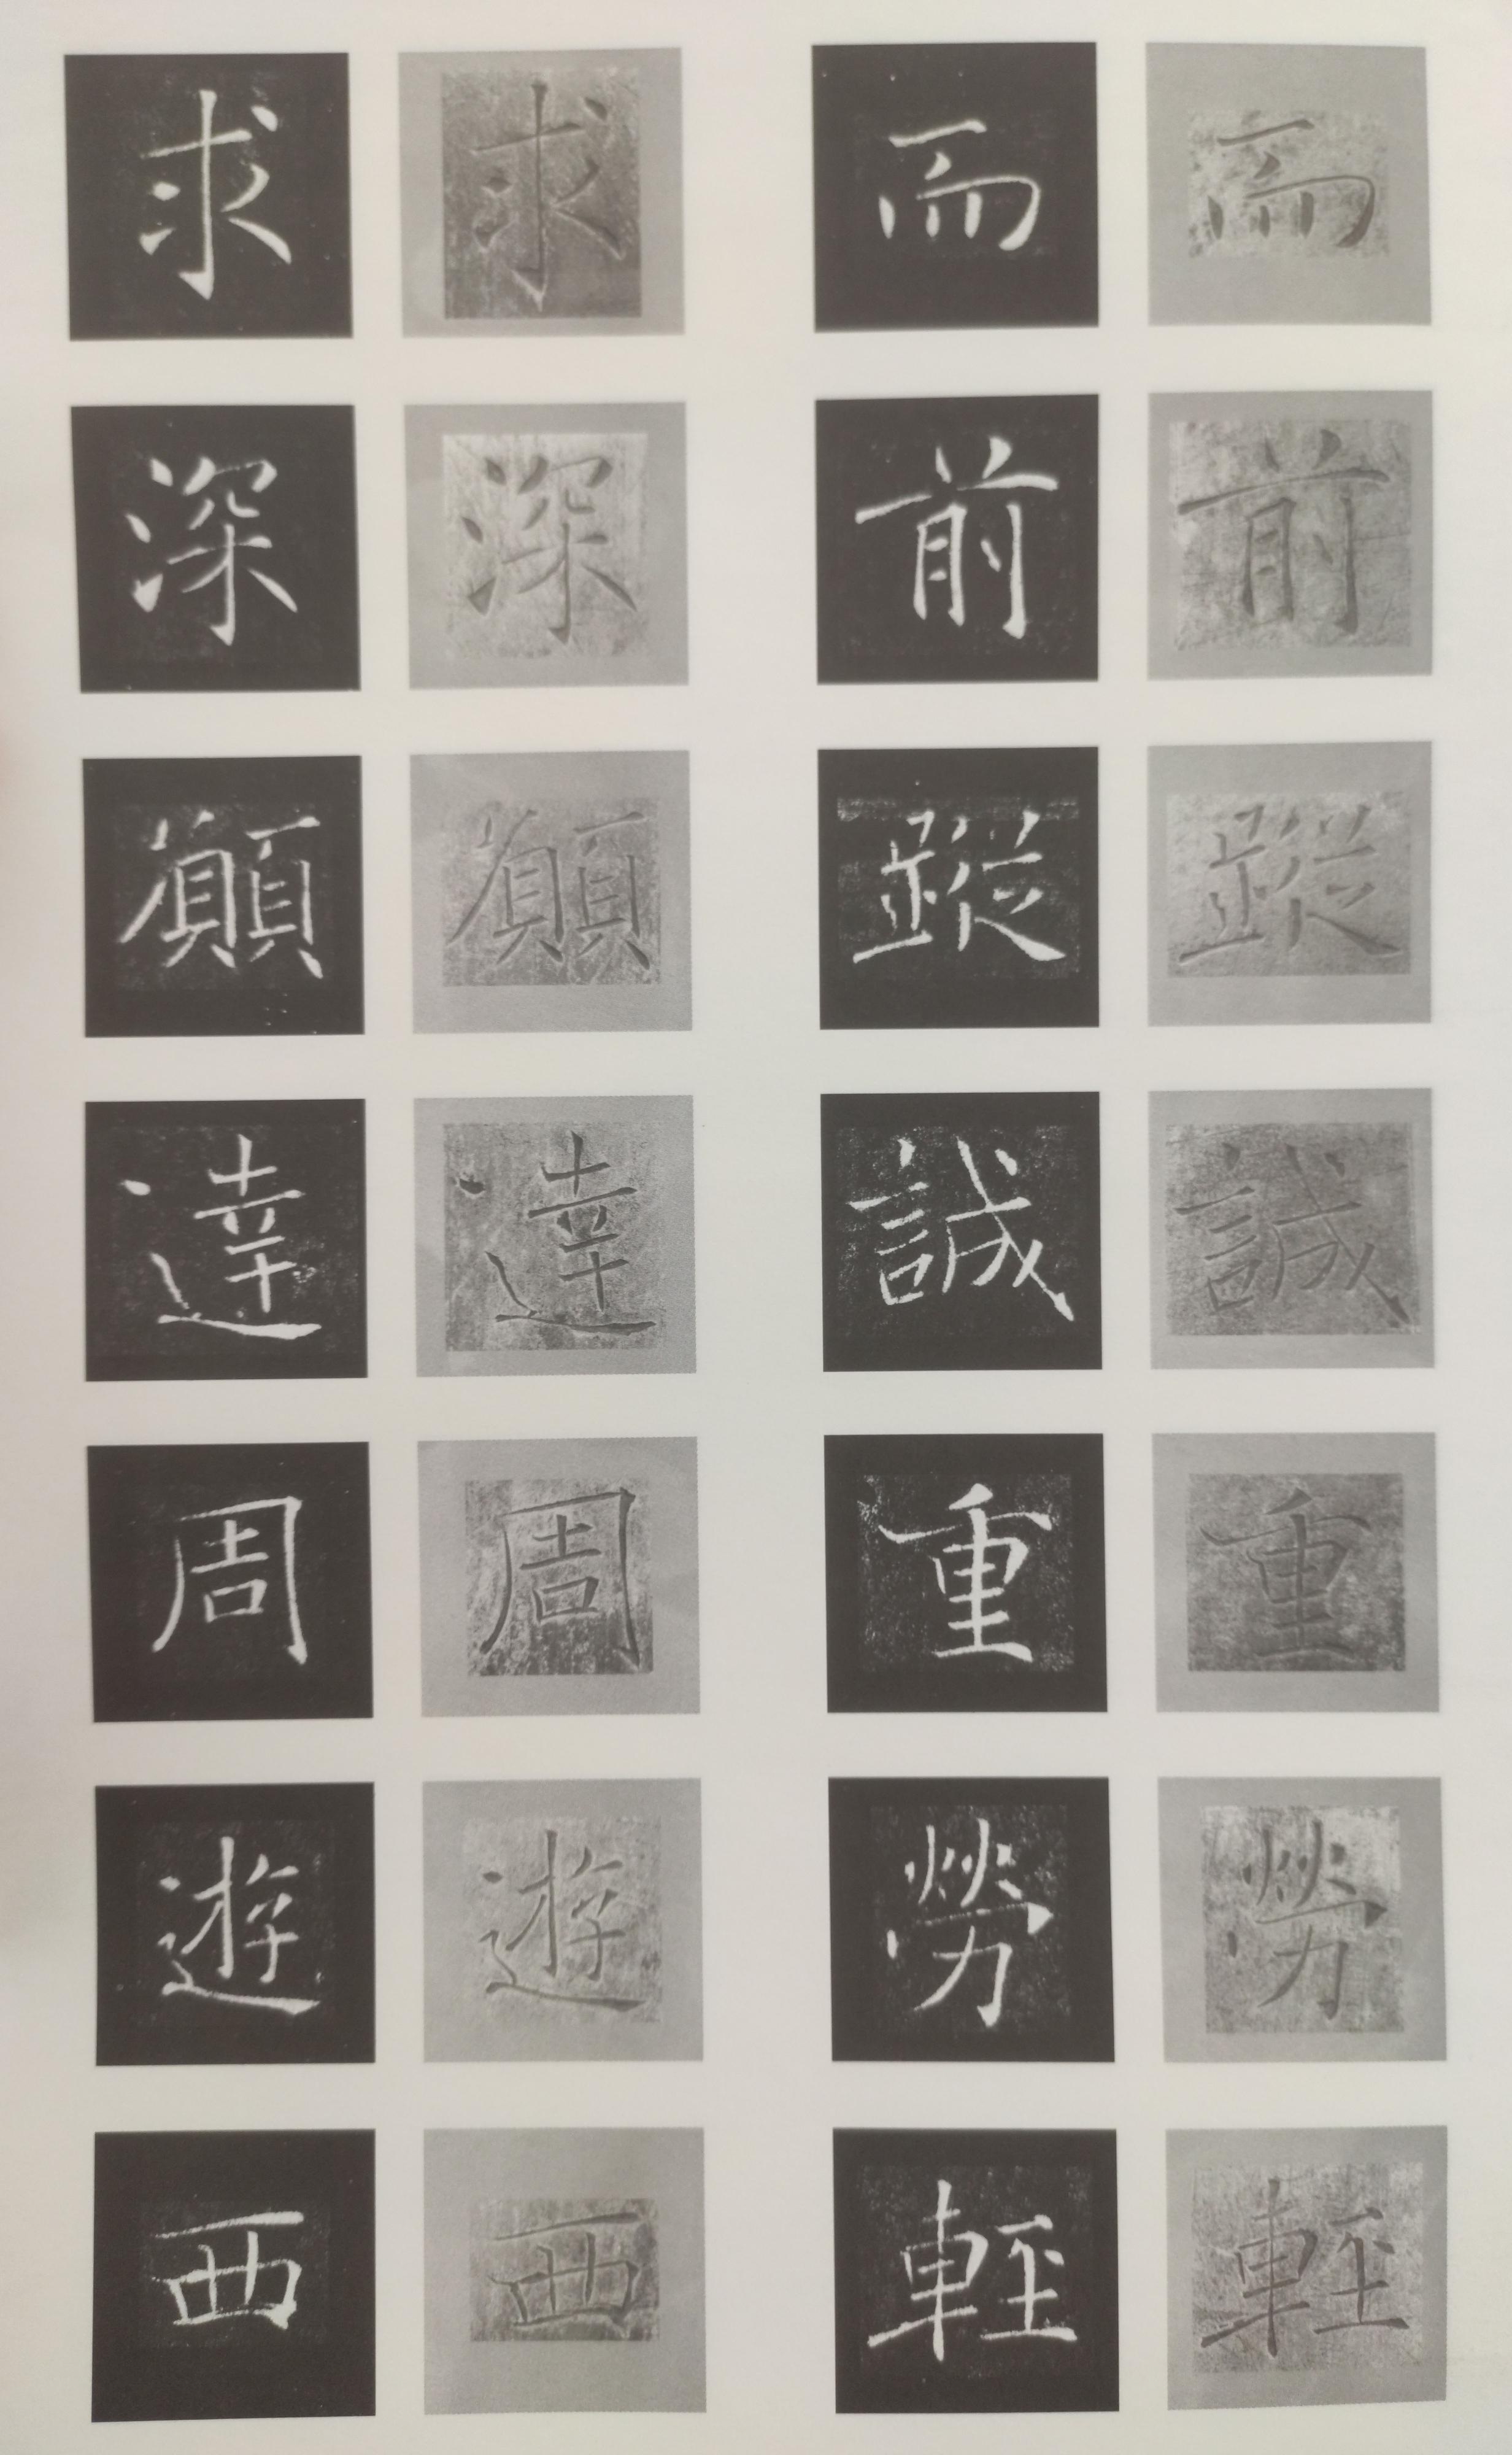 而前蹤誠重勞輕
而前蹤誠重勞輕
求深願達周遊西
求深願達周遊西